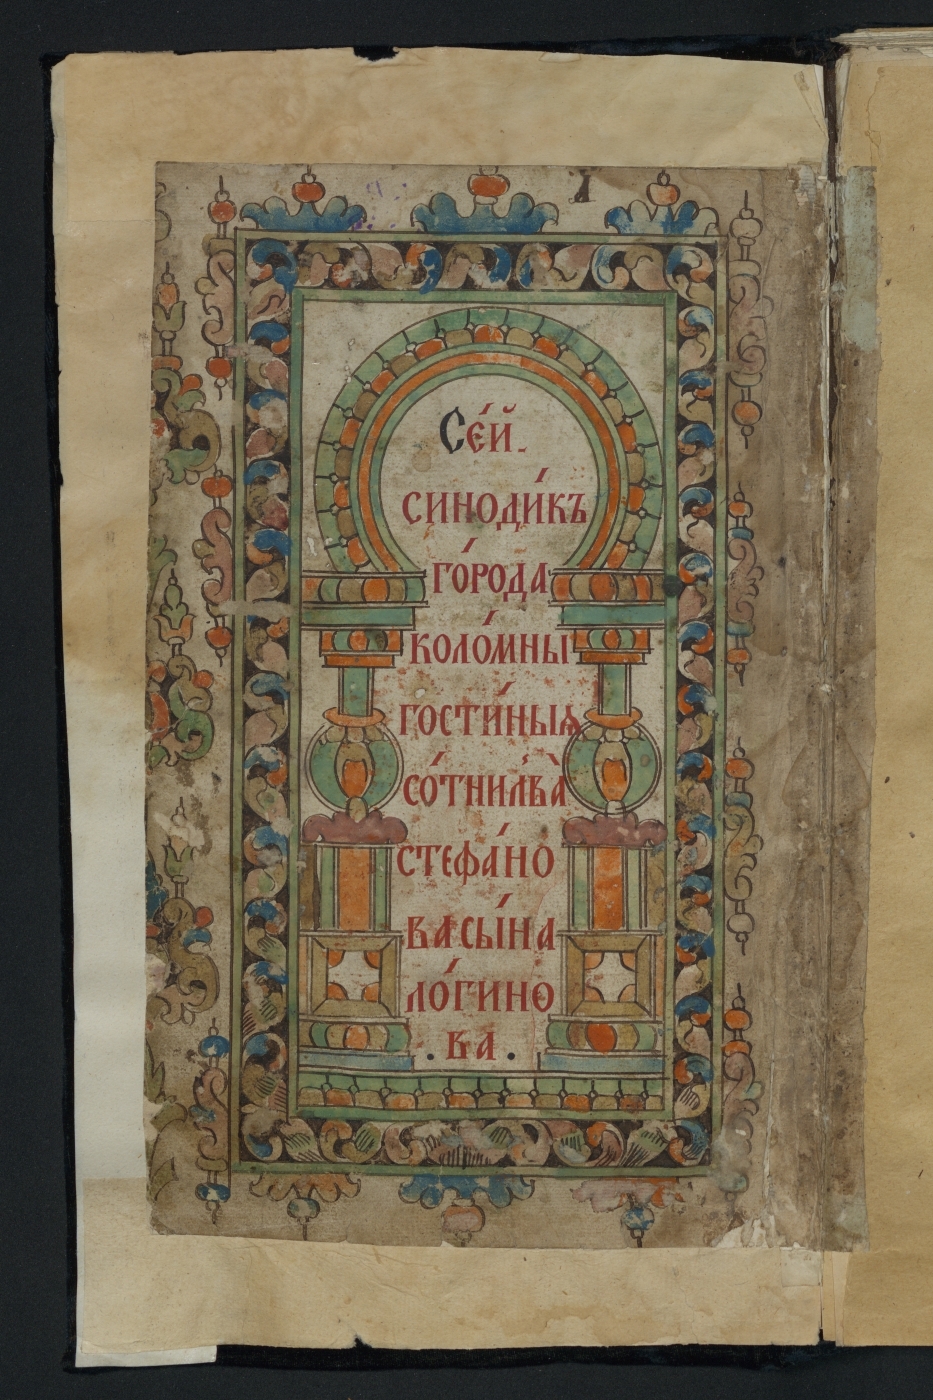 1
Се́й.
синоди́къ
го́рода
коло́мны
гости́ныѧ
со́тни лва̀
стефа́но
ва сы́на
ло́гино
. ва .